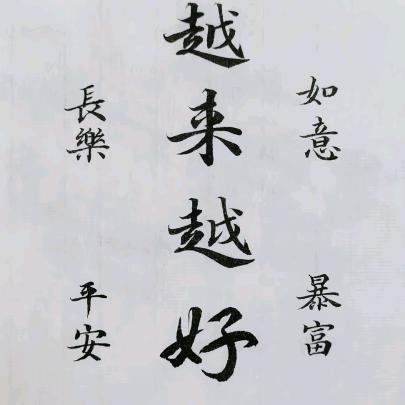 如意
暴富
越来越好
長樂
平安